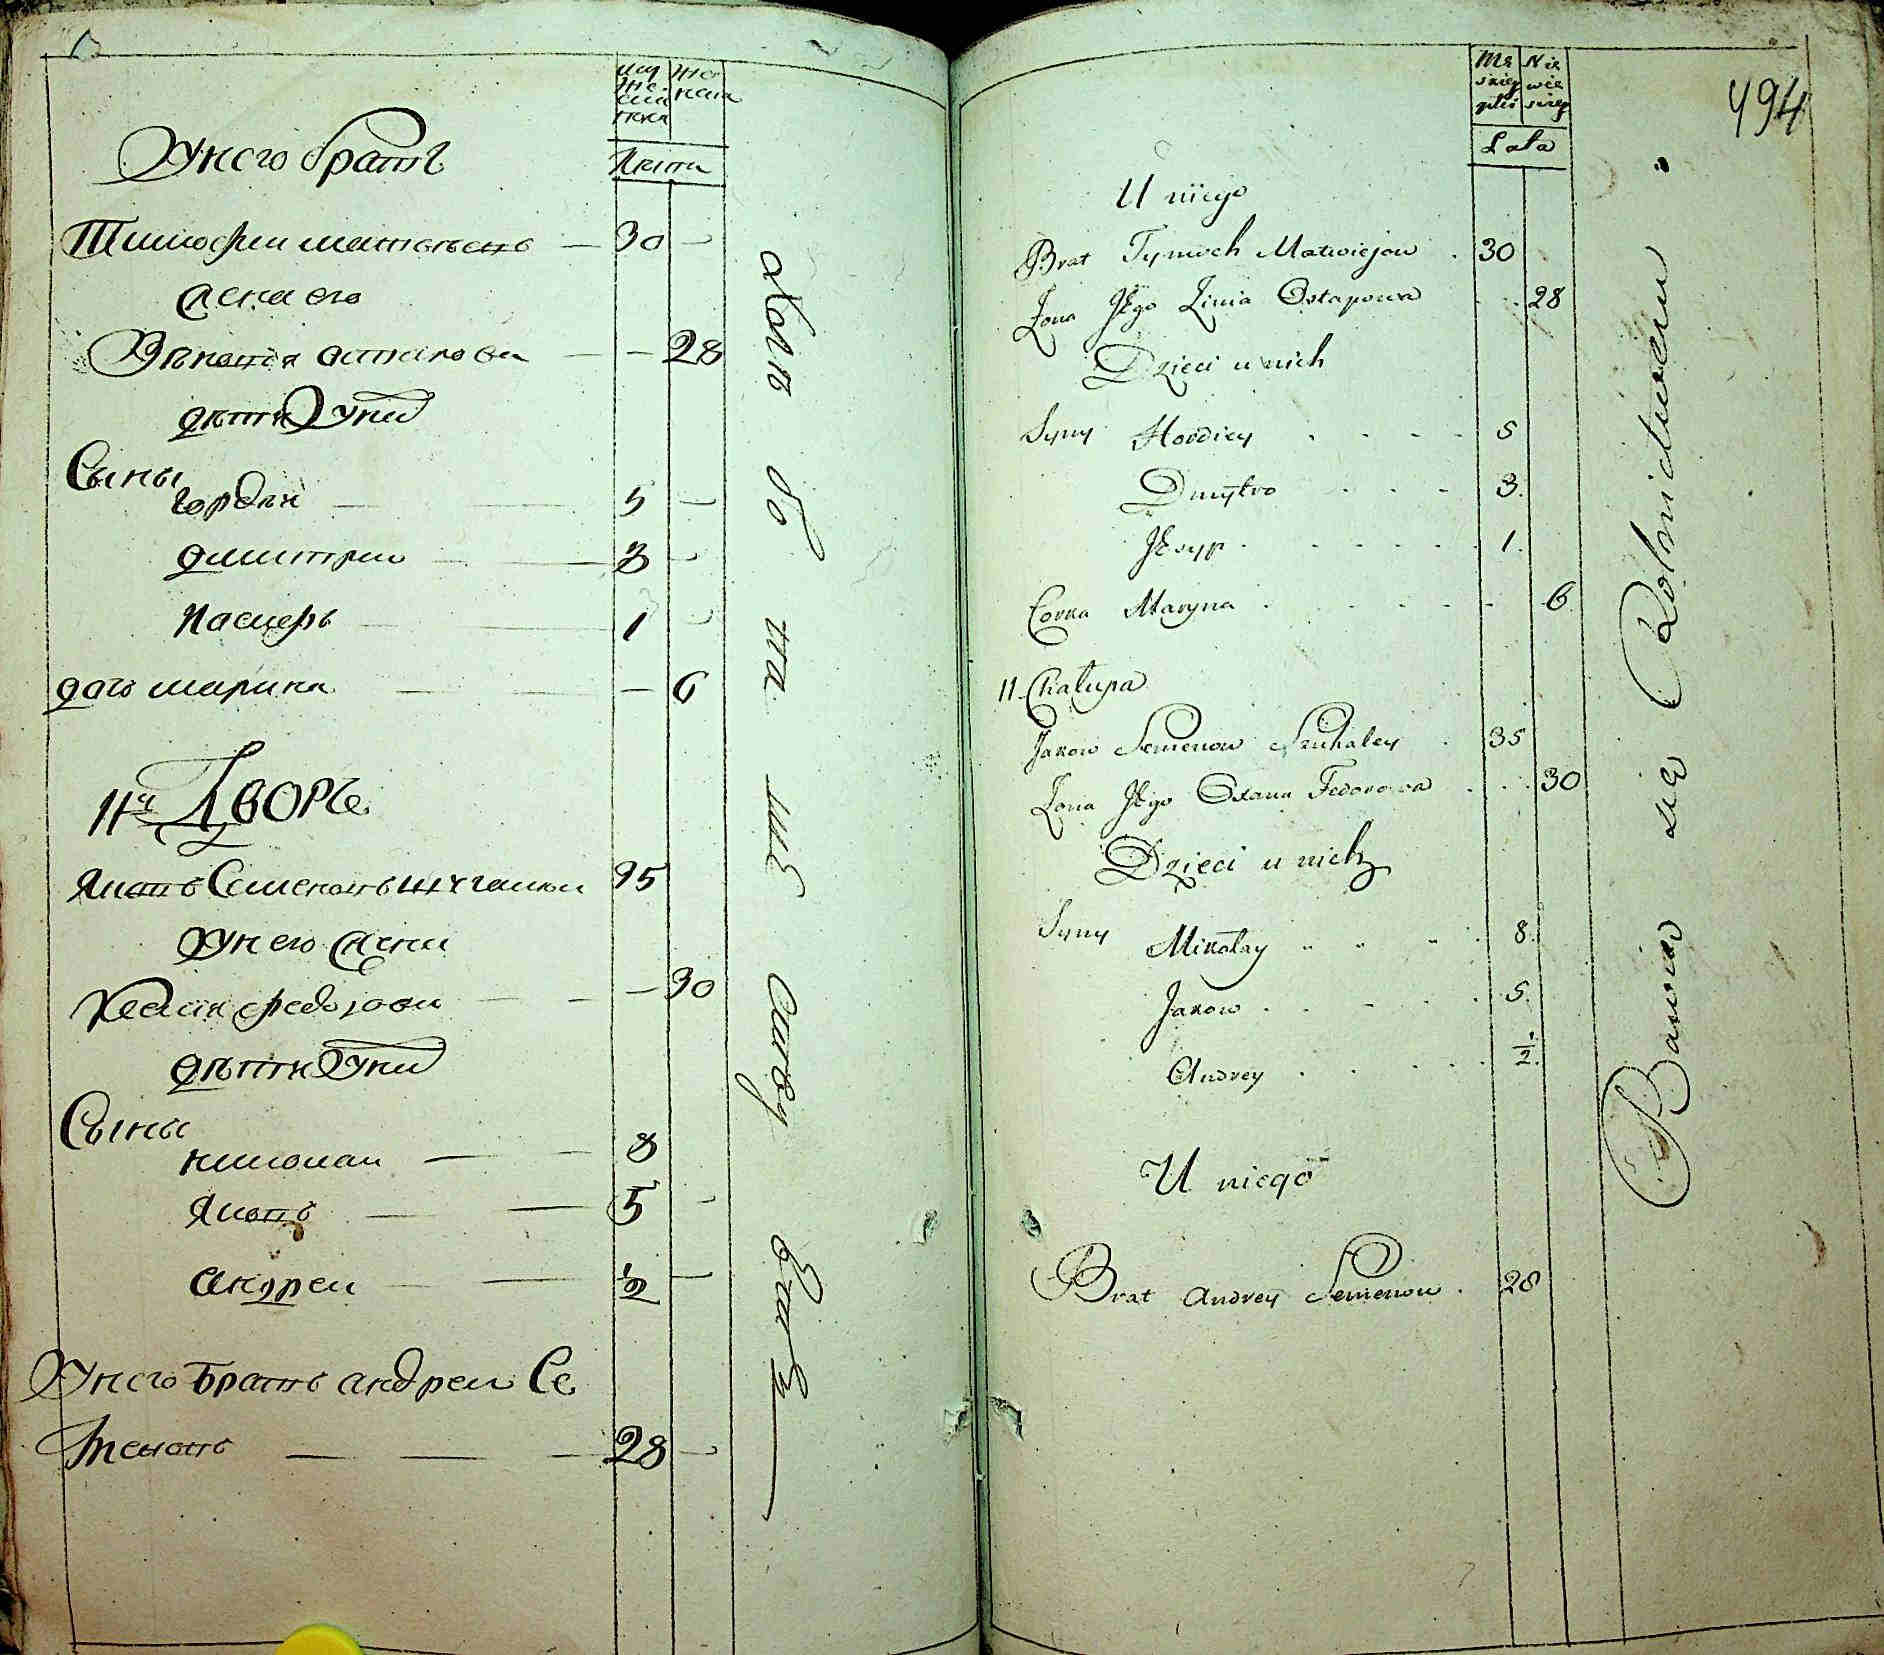 У него братъ
Тимофеи матвѣевъ — 30 —
жена его
остапова — — 28
дѣти у нихъ
Сыны
гордѣи — 5 —
димитрии — 3 —
1 —
дочь марина — — 6
11й ДВОРЪ
Яковъ Семеновъ 35
У него жена
федорова — — 30
дѣти у нихъ
Сыны
николаи — 8
Яковъ — 5 —
андреи — ½ —
У него братъ андреи Се
меновъ — 28 —
Лѣта
494
Męskiey płci
Niewieściey
Lata
U niego
Brat Tymoch Matwiejow . 30
Żona Jego Zinia Ostapowa . . 28
Dzieci u nich
Syny Hordiey . . . . 5
Dmytro . . . 3.
Józyp . . . . . 1.
Corka Maryna . . . . . 6
11. Chałupa
Jakow Semenow Szuhaley . 35
Żona Jego Oxana Fedorowa . . . 30
Dzieci u nich
Syny Mikołay . . . 8.
Jakow . . . . 5.
Andrey . . . . . ½.
U niego
Brat Andrey Semenow . 28
Bawią się Rolnictwem